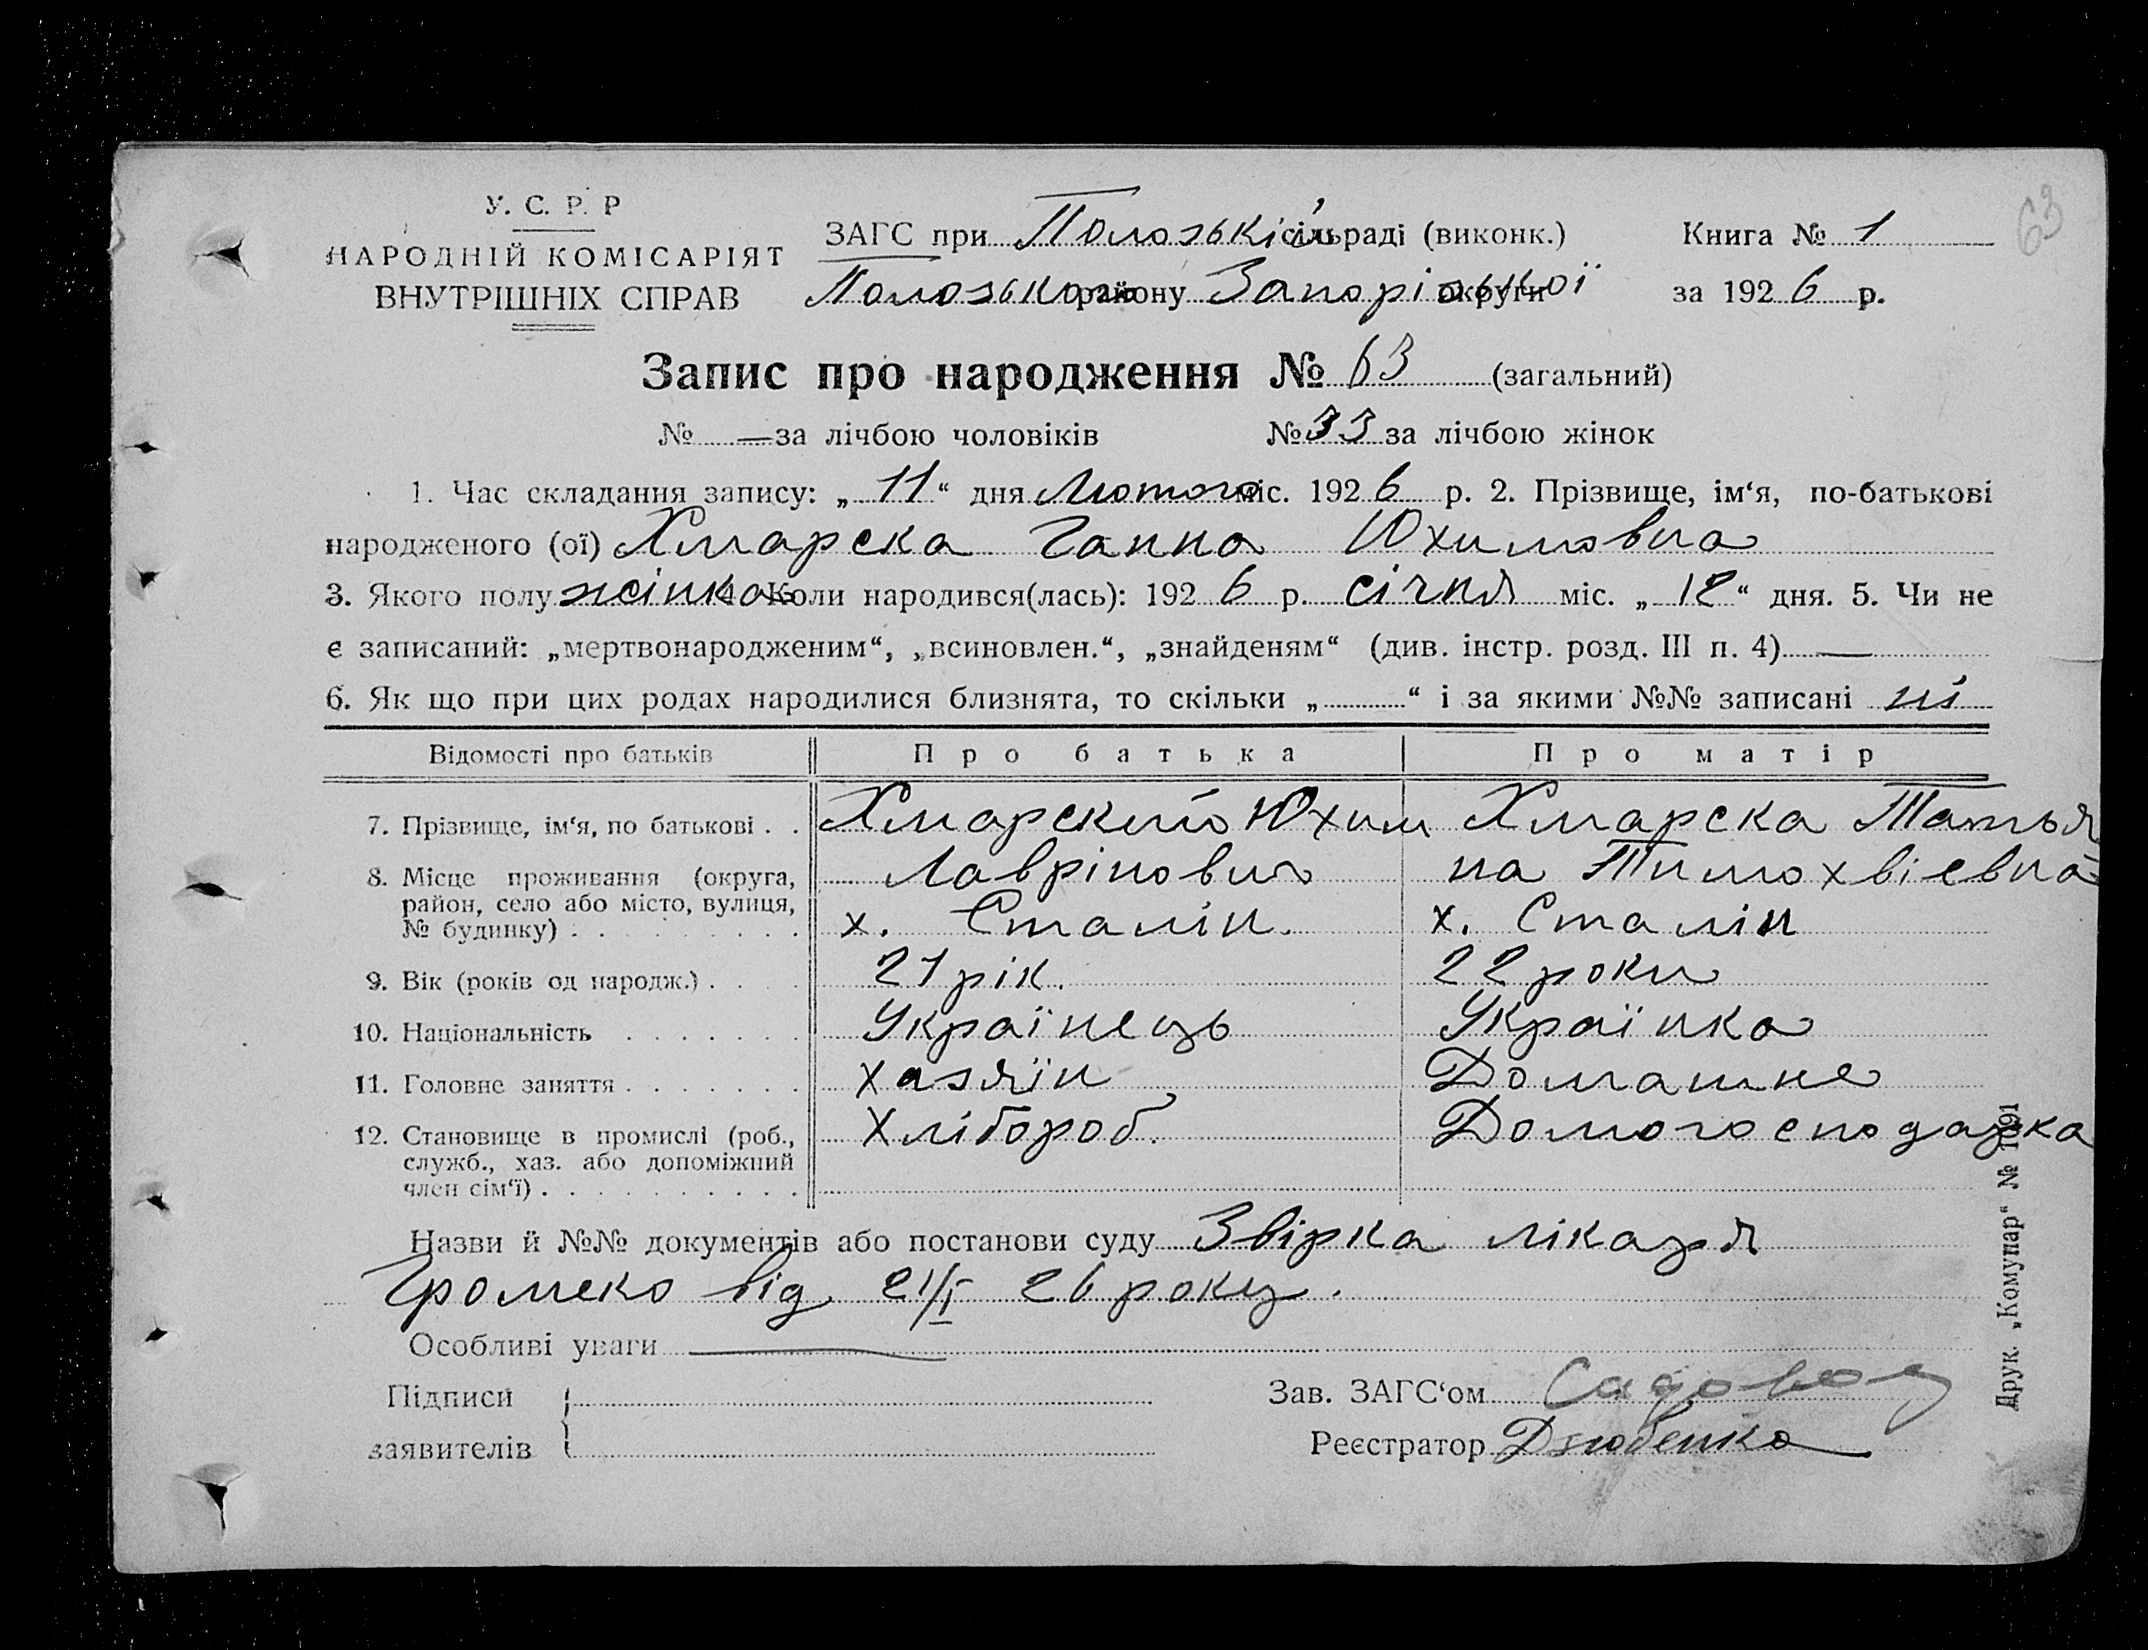 63
У. С. Р. Р
НАРОДНІЙ КОМІСАРІЯТ
ВНУТРІШНІХ СПРАВ
ЗАГС при Пологській сільраді (виконк.) Книга № 1
Пологського району Запорізької округи за 1926 р.
Запис про народження № 63 (загальний)
№ — за лічбою чоловіків № 33 за лічбою жінок
1. Час складання запису: „11“ дня Лютого міс. 1926 р. 2. Прізвище, ім‘я, по-батькові
народженого (ої) Хмарска Ганна Юхимовна
3. Якого полу жінка 4. Коли народився(лась): 1926 р. січня міс. „12“ дня. 5. Чи не
є записаний: „мертвонародженим“, „всиновлен.“, „знайденям“ (див. інстр. розд. III п. 4) —
6. Як що при цих родах народилися близнята, то скільки „ “ і за якими №№ записані ні
Відомості про батьків Про батька Про матір
7. Прізвище, ім‘я, по батькові . . Хмарский Юхим Хмарска Татья
8. Місце проживання (округа, Лаврінович на Тимохвієвна
район, село або місто, вулиця,
№ будинку) . . . . . . . . . х. Сталін. х. Сталін
9. Вік (років од народж.) . . . . 21 рік. 22 роки
10. Національність . . . . . . . Українець Українка
11. Головне заняття . . . . . . . хазяїн Домашне
12. Становище в промислі (роб., Хлібороб. Домогосподарка
служб., хаз. або допоміжний
член сім‘ї) . . . . . . . . . .
Назви й №№ документів або постанови суду Звірка лікаря
Громеко від 21/I 26 року.
Особливі уваги —
Підписи Зав. ЗАГС‘ом
заявителів Реєстратор Дзюбенко
Друк. „Комунар“ № 1091